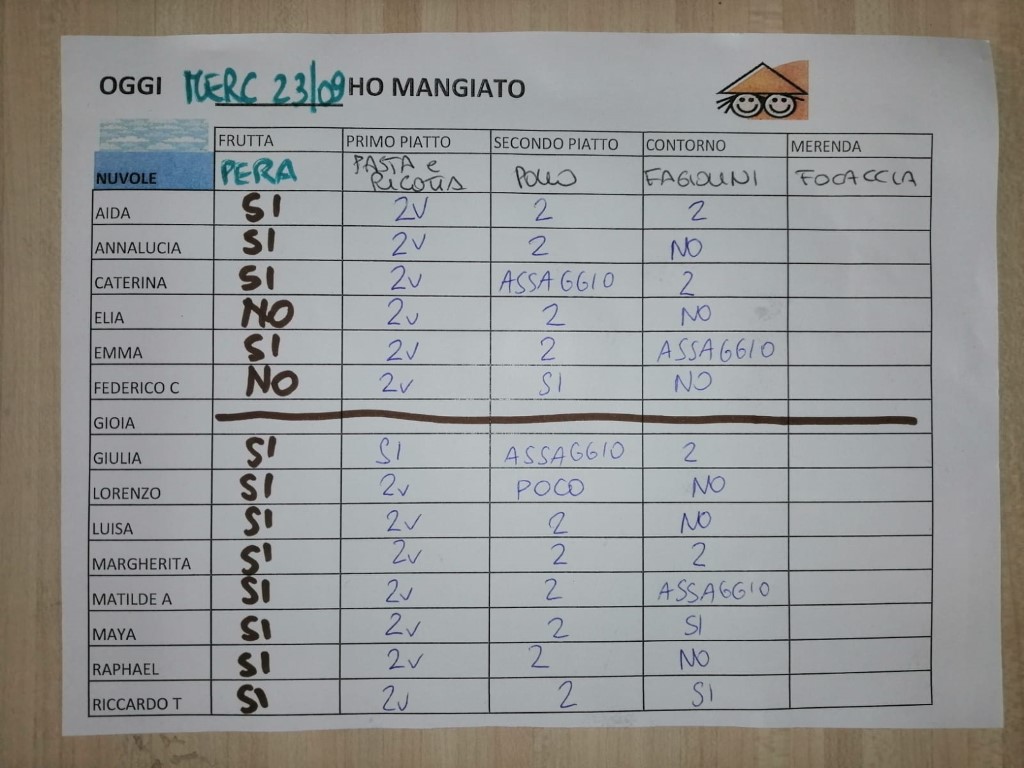 OGGI MERC 23/09 HO MANGIATO
FRUTTA PRIMO PIATTO SECONDO PIATTO CONTORNO MERENDA
NUVOLE PERA PASTA e RICOTTA POLLO FAGIOLINI FOCACCIA
AIDA SI 2V 2 2
ANNALUCIA SI 2V 2 NO
CATERINA SI 2V ASSAGGIO 2
ELIA NO 2V 2 NO
EMMA SI 2V 2 ASSAGGIO
FEDERICO C NO 2V SI NO
GIOIA
GIULIA SI SI ASSAGGIO 2
LORENZO SI 2V POCO NO
LUISA SI 2V 2 NO
MARGHERITA SI 2V 2 2
MATILDE A SI 2V 2 ASSAGGIO
MAYA SI 2V 2 SI
RAPHAEL SI 2V 2 NO
RICCARDO T SI 2V 2 SI